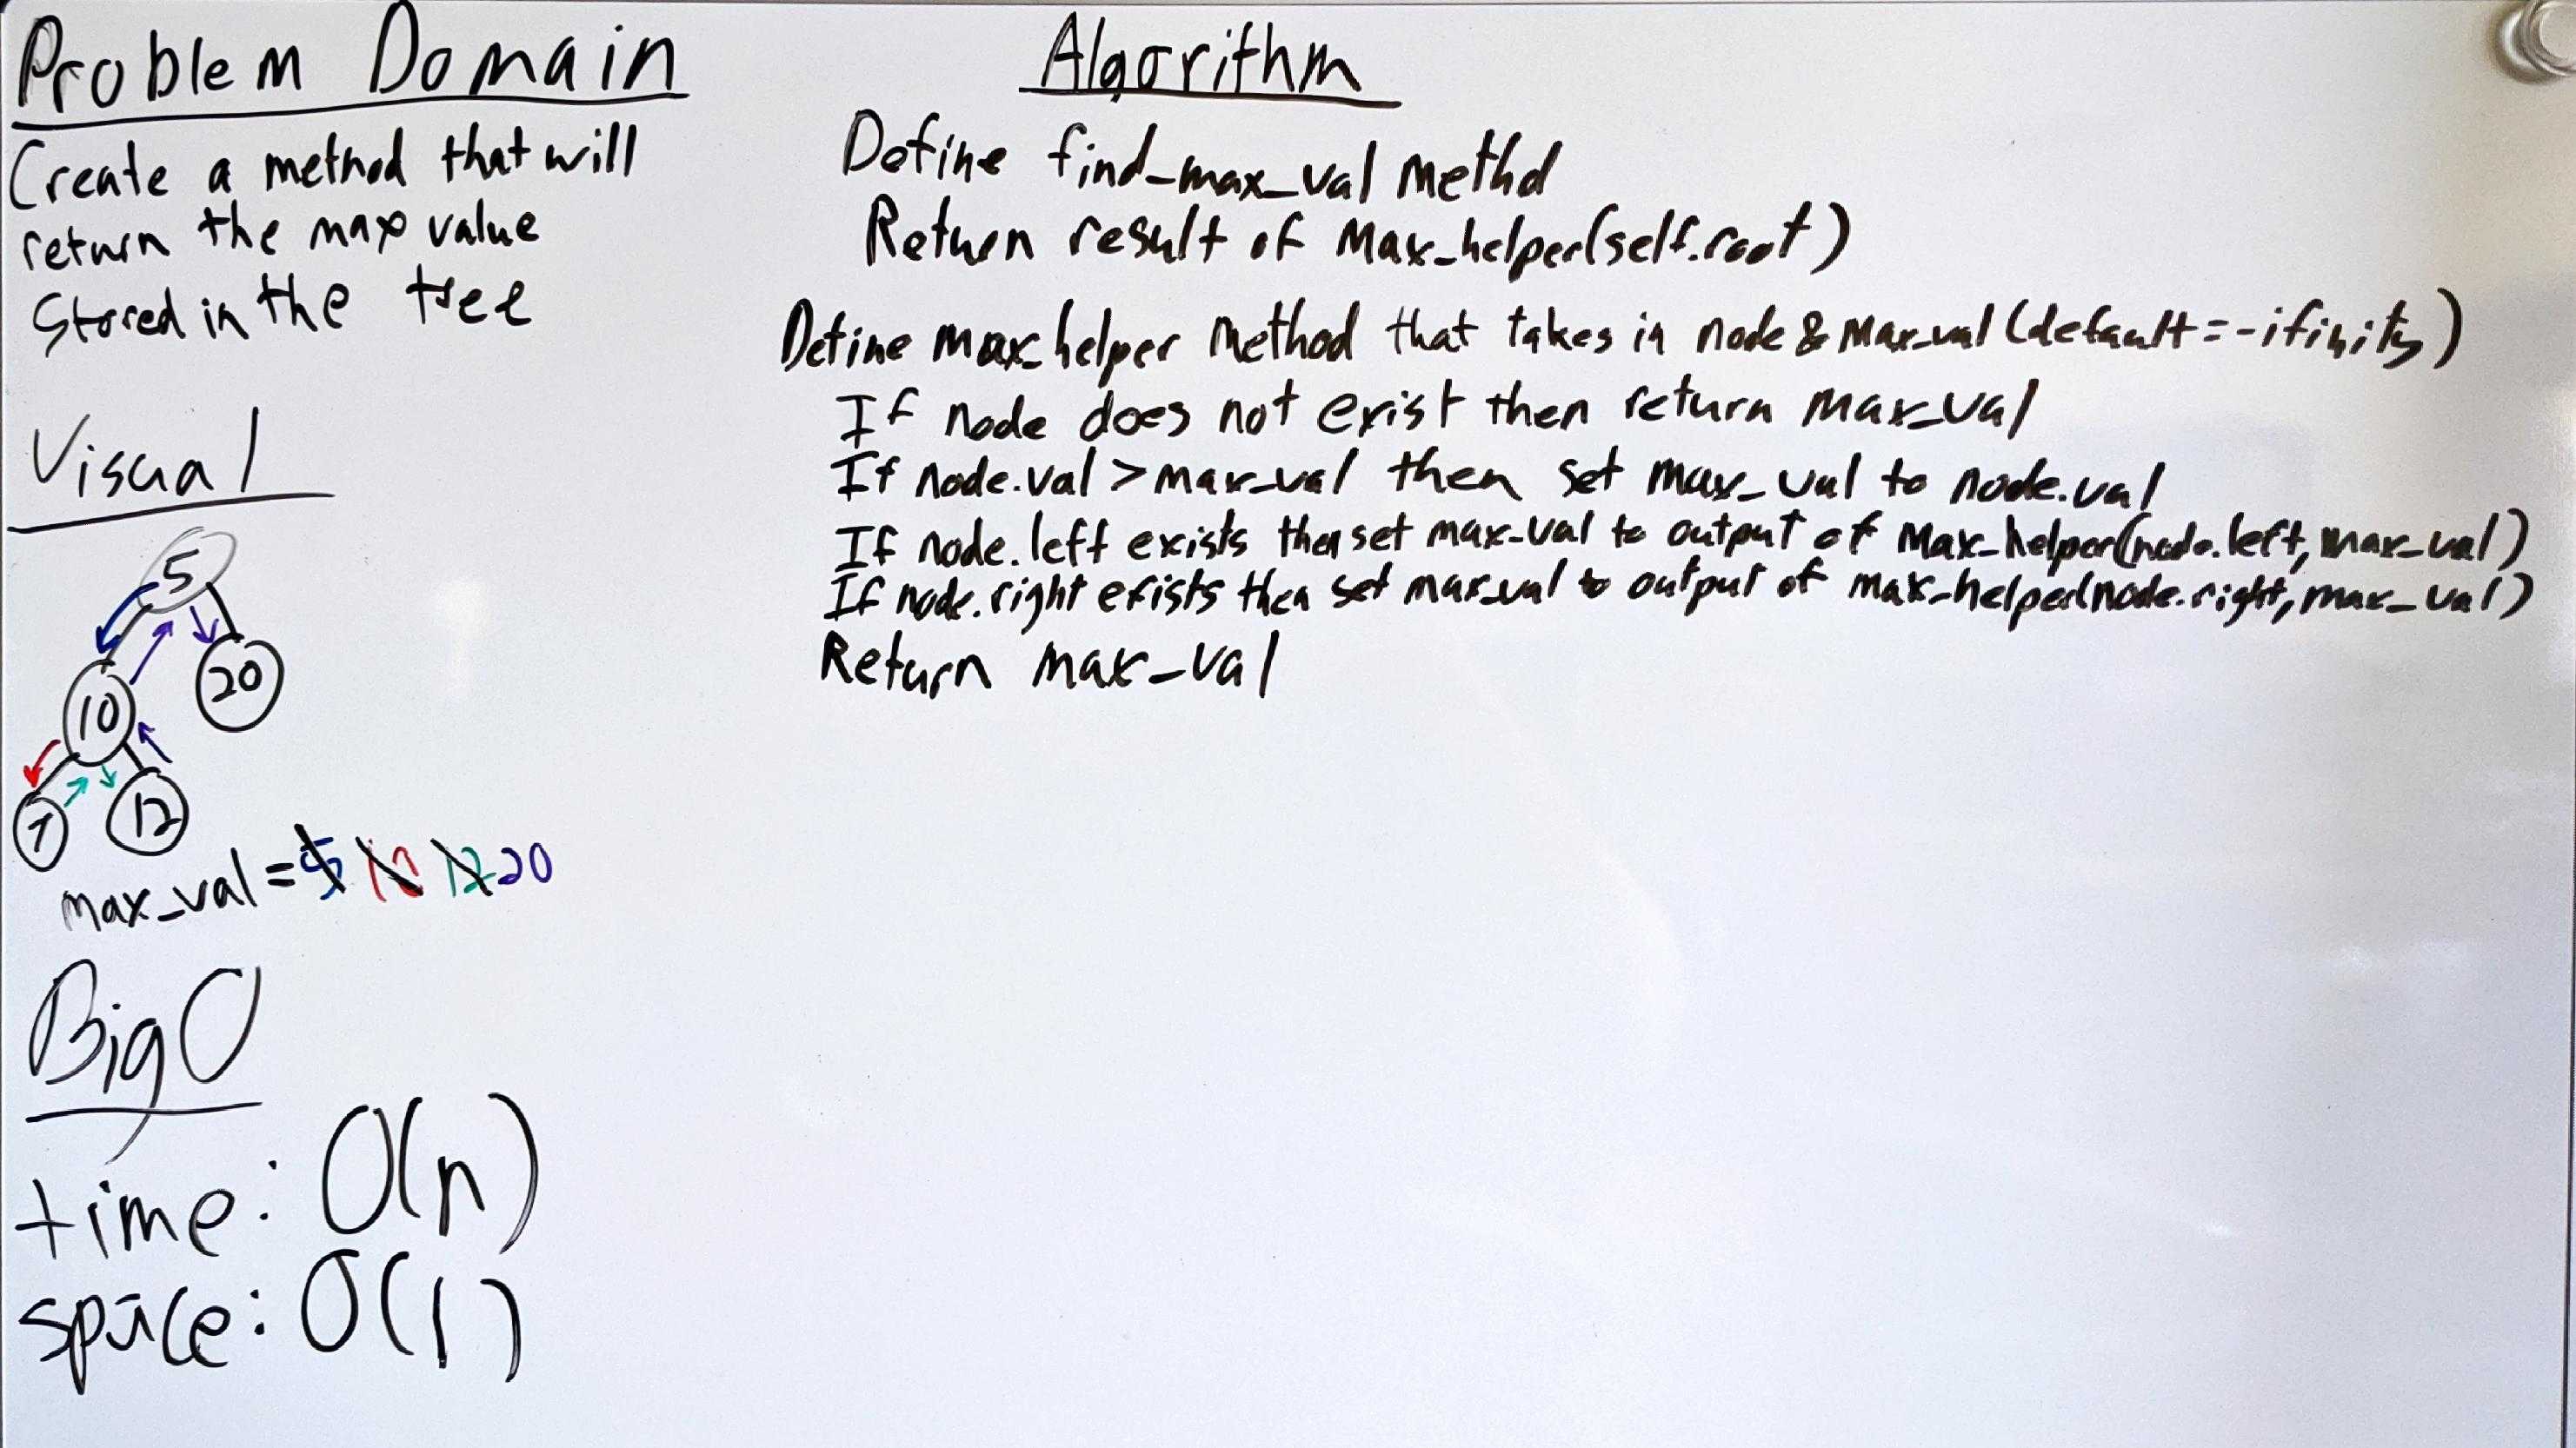 Problem Domain
Create a method that will
return the max value
Stored in the tree
Visual
5
10
20
7
12
max_val = 5 10 12 20
Big O
time: O(n)
space: O(1)
Algorithm
Define find_max_val methd
Return result of Max_helper(self.root)
Define max_helper Method that takes in node & Max_val (default = -ifinity)
If node does not exist then return max_val
If node.val > max_val then set max_val to node.val
If node.left exists then set max_val to output of Max_helper(node.left, max_val)
If node.right exists then set max_val to output of max_helper(node.right, max_val)
Return max_val